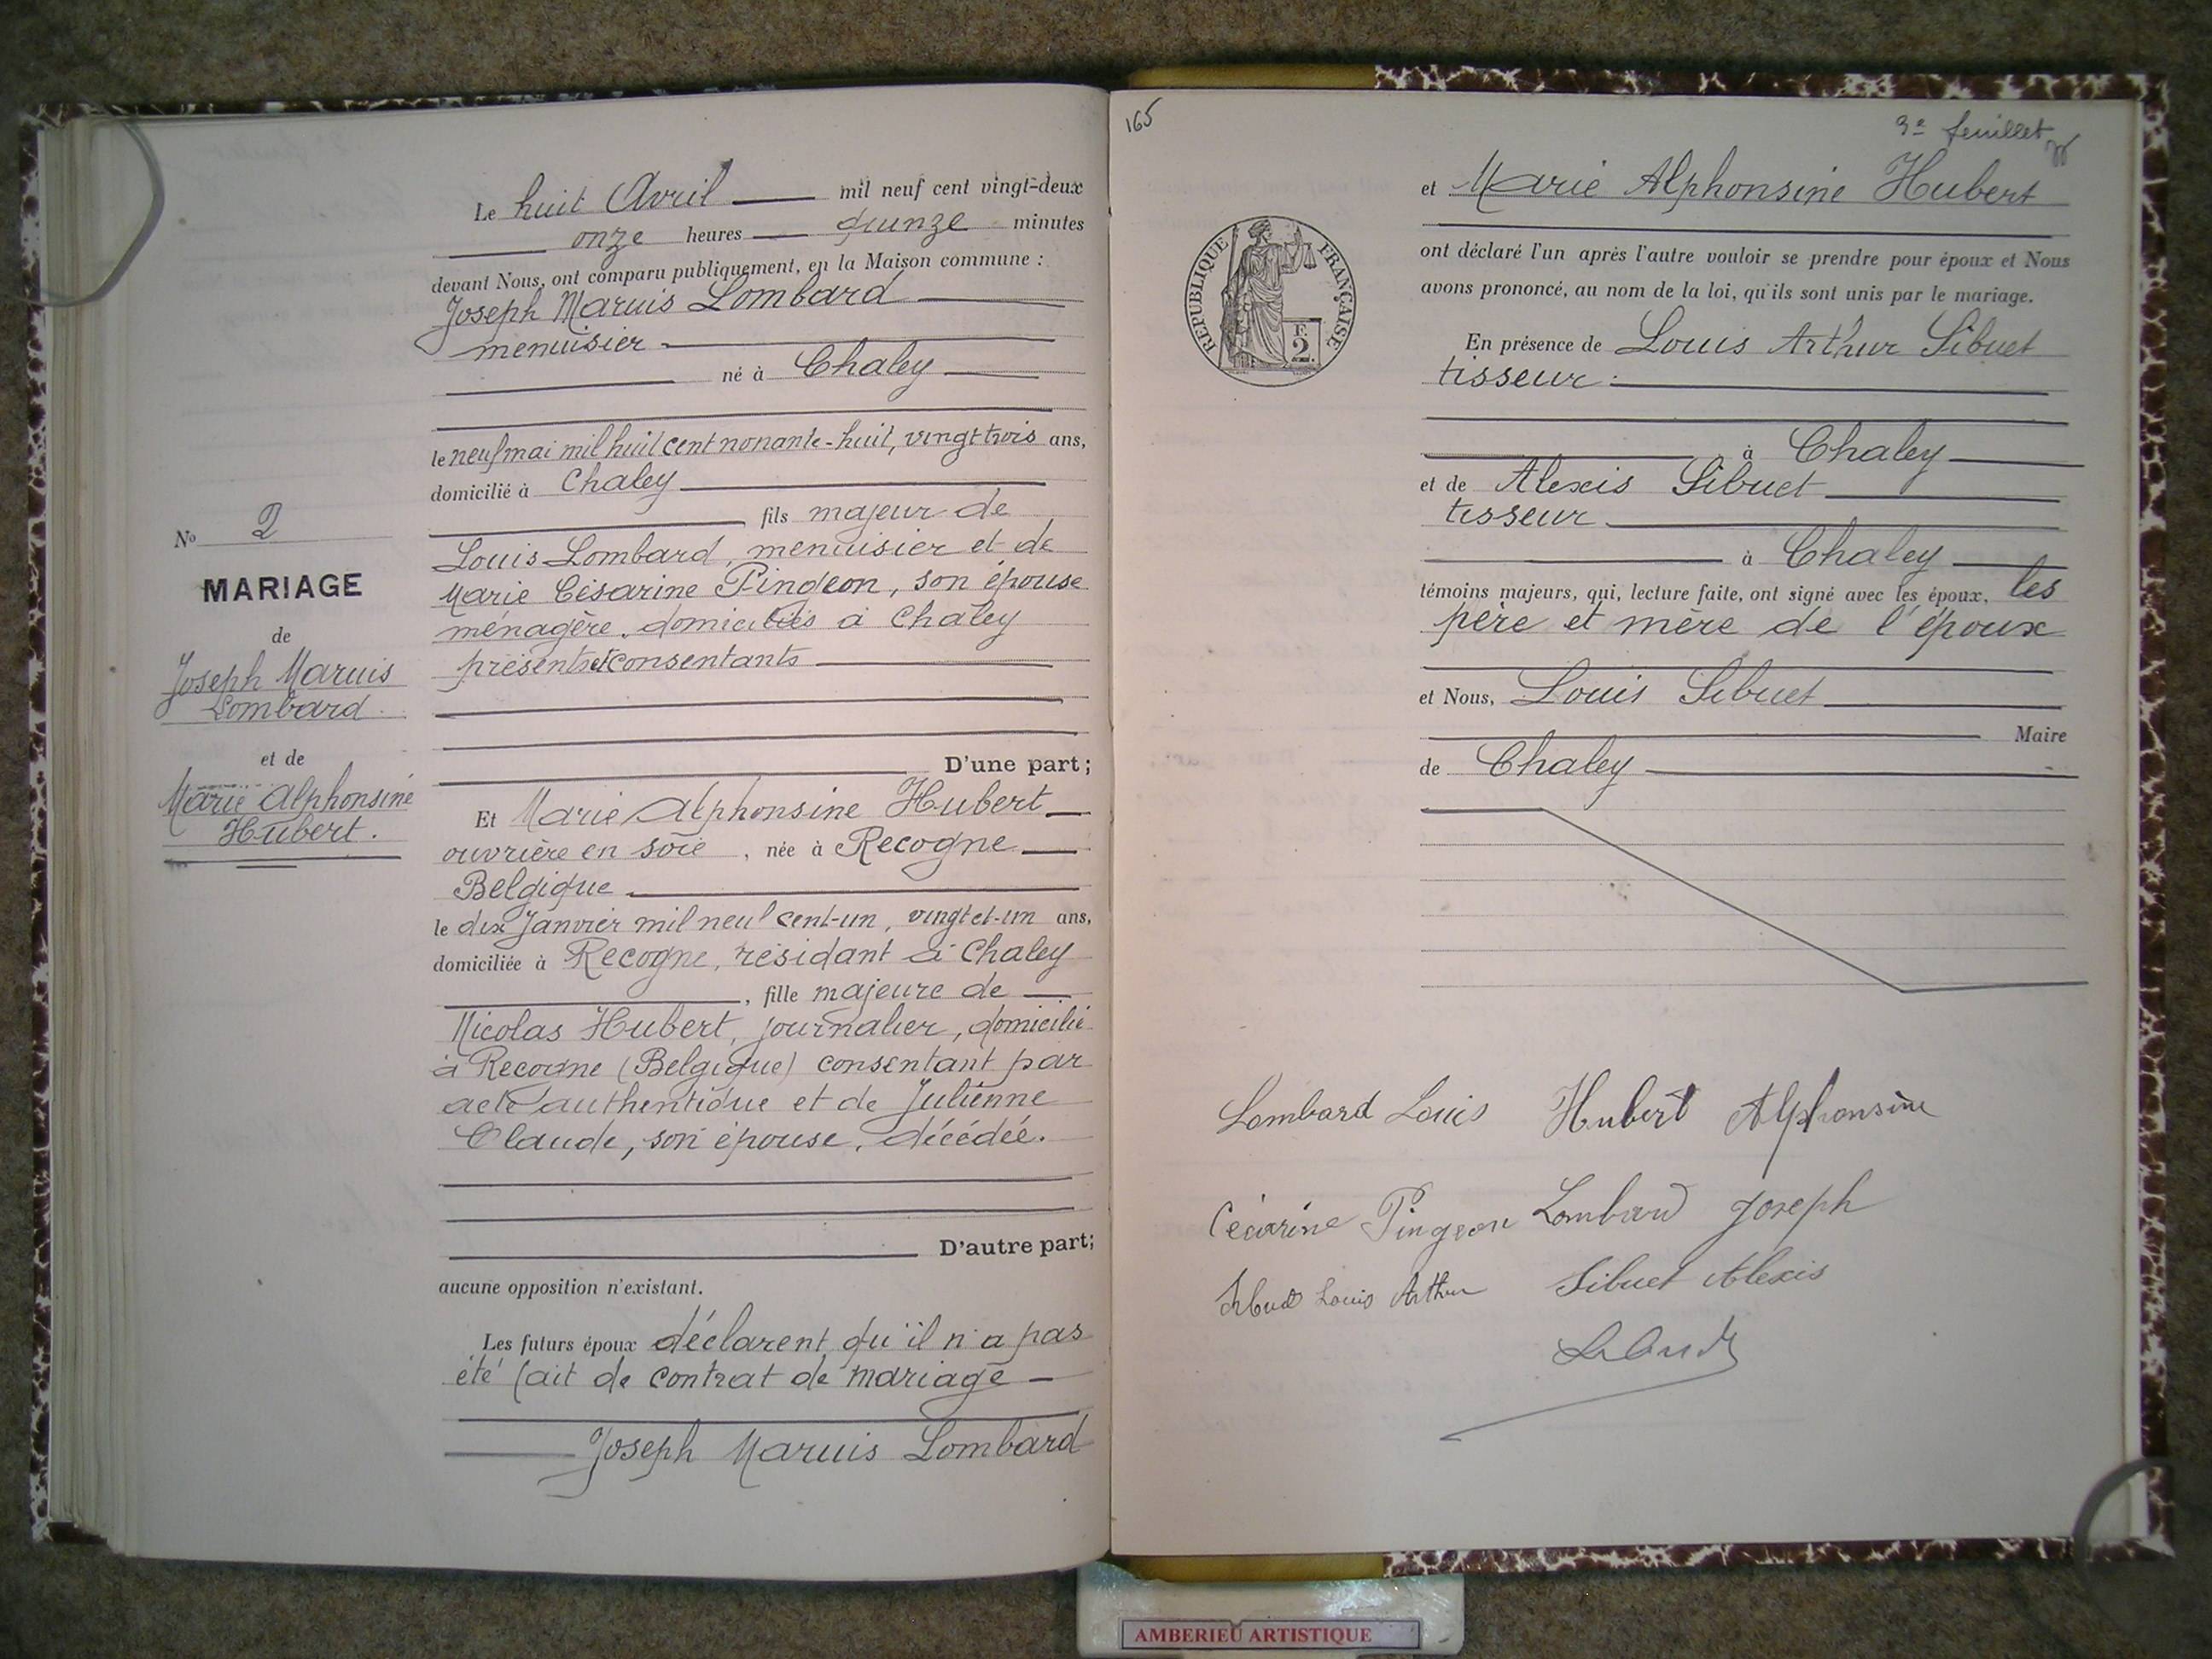 Le huit Avril mil neuf cent vingt-deux
onze heures quinze minutes
devant Nous, ont comparu publiquement, en la Maison commune :
Joseph Marius Lombard
menuisier
né à Chaley
le neuf mai mil huit cent nonante-huit, vingt trois ans,
domicilié à Chaley
fils majeur de
Louis Lombard, menuisier et de
Marie Césarine Pingeon, son épouse
ménagère, domiciliés à Chaley
présents et consentants
D'une part;
Et Marie Alphonsine Hubert
ouvrière en soie, née à Recogne
Belgique
le dix Janvier mil neuf cent-un, vingt et-un ans,
domiciliée à Recogne, résidant à Chaley
, fille majeure de
Nicolas Hubert, journalier, domicilié
à Recogne (Belgique) consentant par
acte authentique et de Julienne
Claude, son épouse, décédée.
D'autre part;
aucune opposition n'existant.
Les futurs époux déclarent qu'il n'a pas
été fait de contrat de mariage
Joseph Marius Lombard
No 2
MARIAGE
de
Joseph Marius
Lombard
et de
Marie Alphonsine
Hubert.
165
3e feuillet
et Marie Alphonsine Hubert
ont déclaré l'un après l'autre vouloir se prendre pour époux et Nous
avons prononcé, au nom de la loi, qu'ils sont unis par le mariage.
En présence de Louis Arthur Sibuet
tisseur
à Chaley
et de Alexis Sibuet
tisseur
à Chaley
témoins majeurs, qui, lecture faite, ont signé avec les époux, les
père et mère de l'époux
et Nous, Louis Sibuet
Maire
de Chaley
REPUBLIQUE FRANÇAISE
F.
2
Lombard Louis Hubert Alphonsine
Césarine Pingeon Lombard Joseph
Sibuet Louis Arthur Sibuet Alexis
AMBERIEU ARTISTIQUE